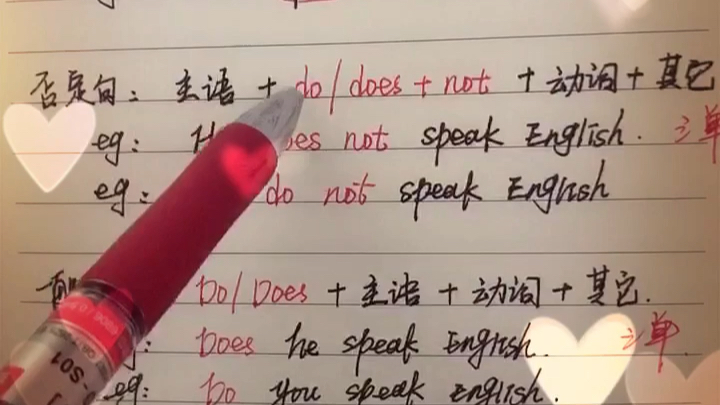 否定句：主语 + do/does + not + 动词 + 其它
eg: does not speak English. 三单
eg: do not speak English
Do/Does + 主语 + 动词 + 其它.
eg: Does he speak English. 三单.
eg: Do you speak English.